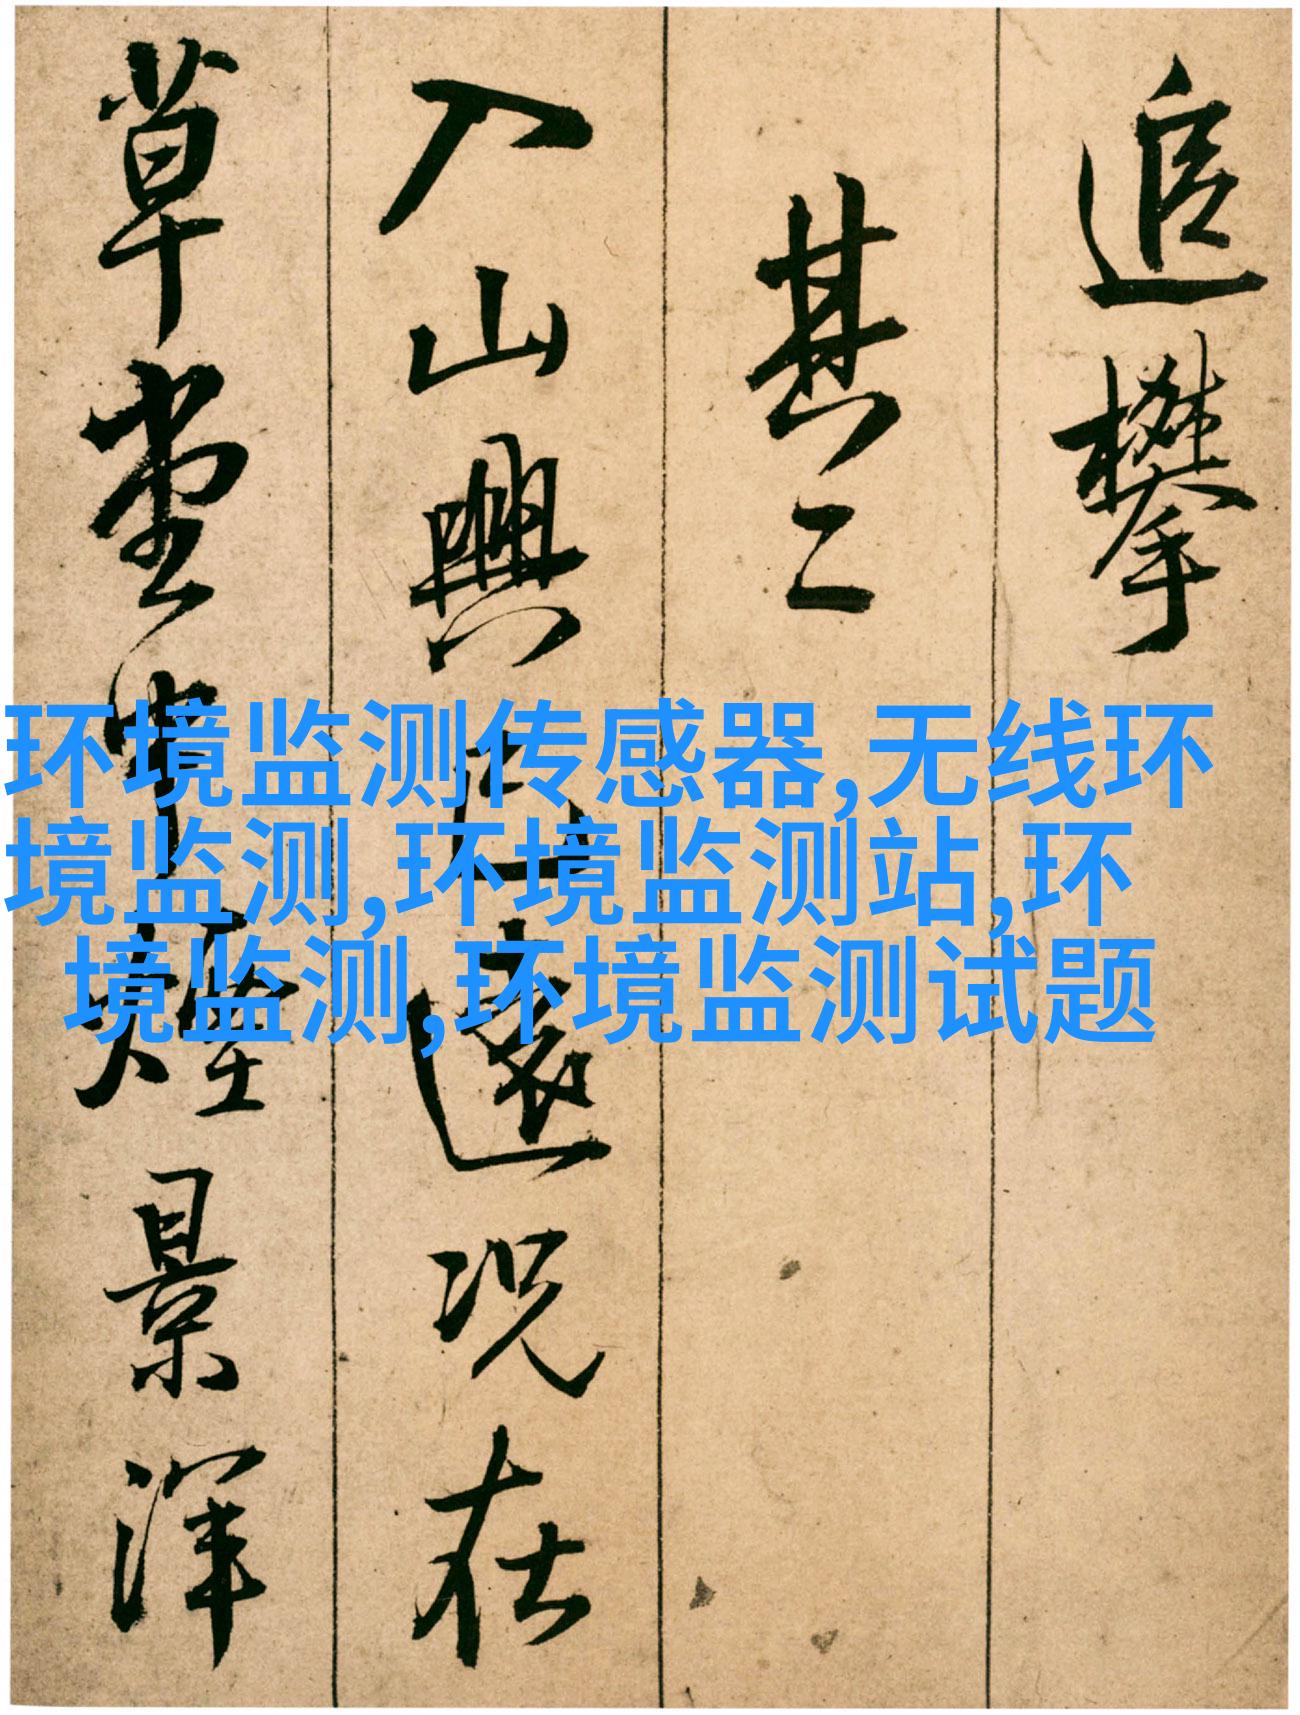 追攀
其二
入山興已遠况在
草堂中煙景渾
环境监测传感器,无线环
境监测,环境监测站,环
境监测,环境监测试题